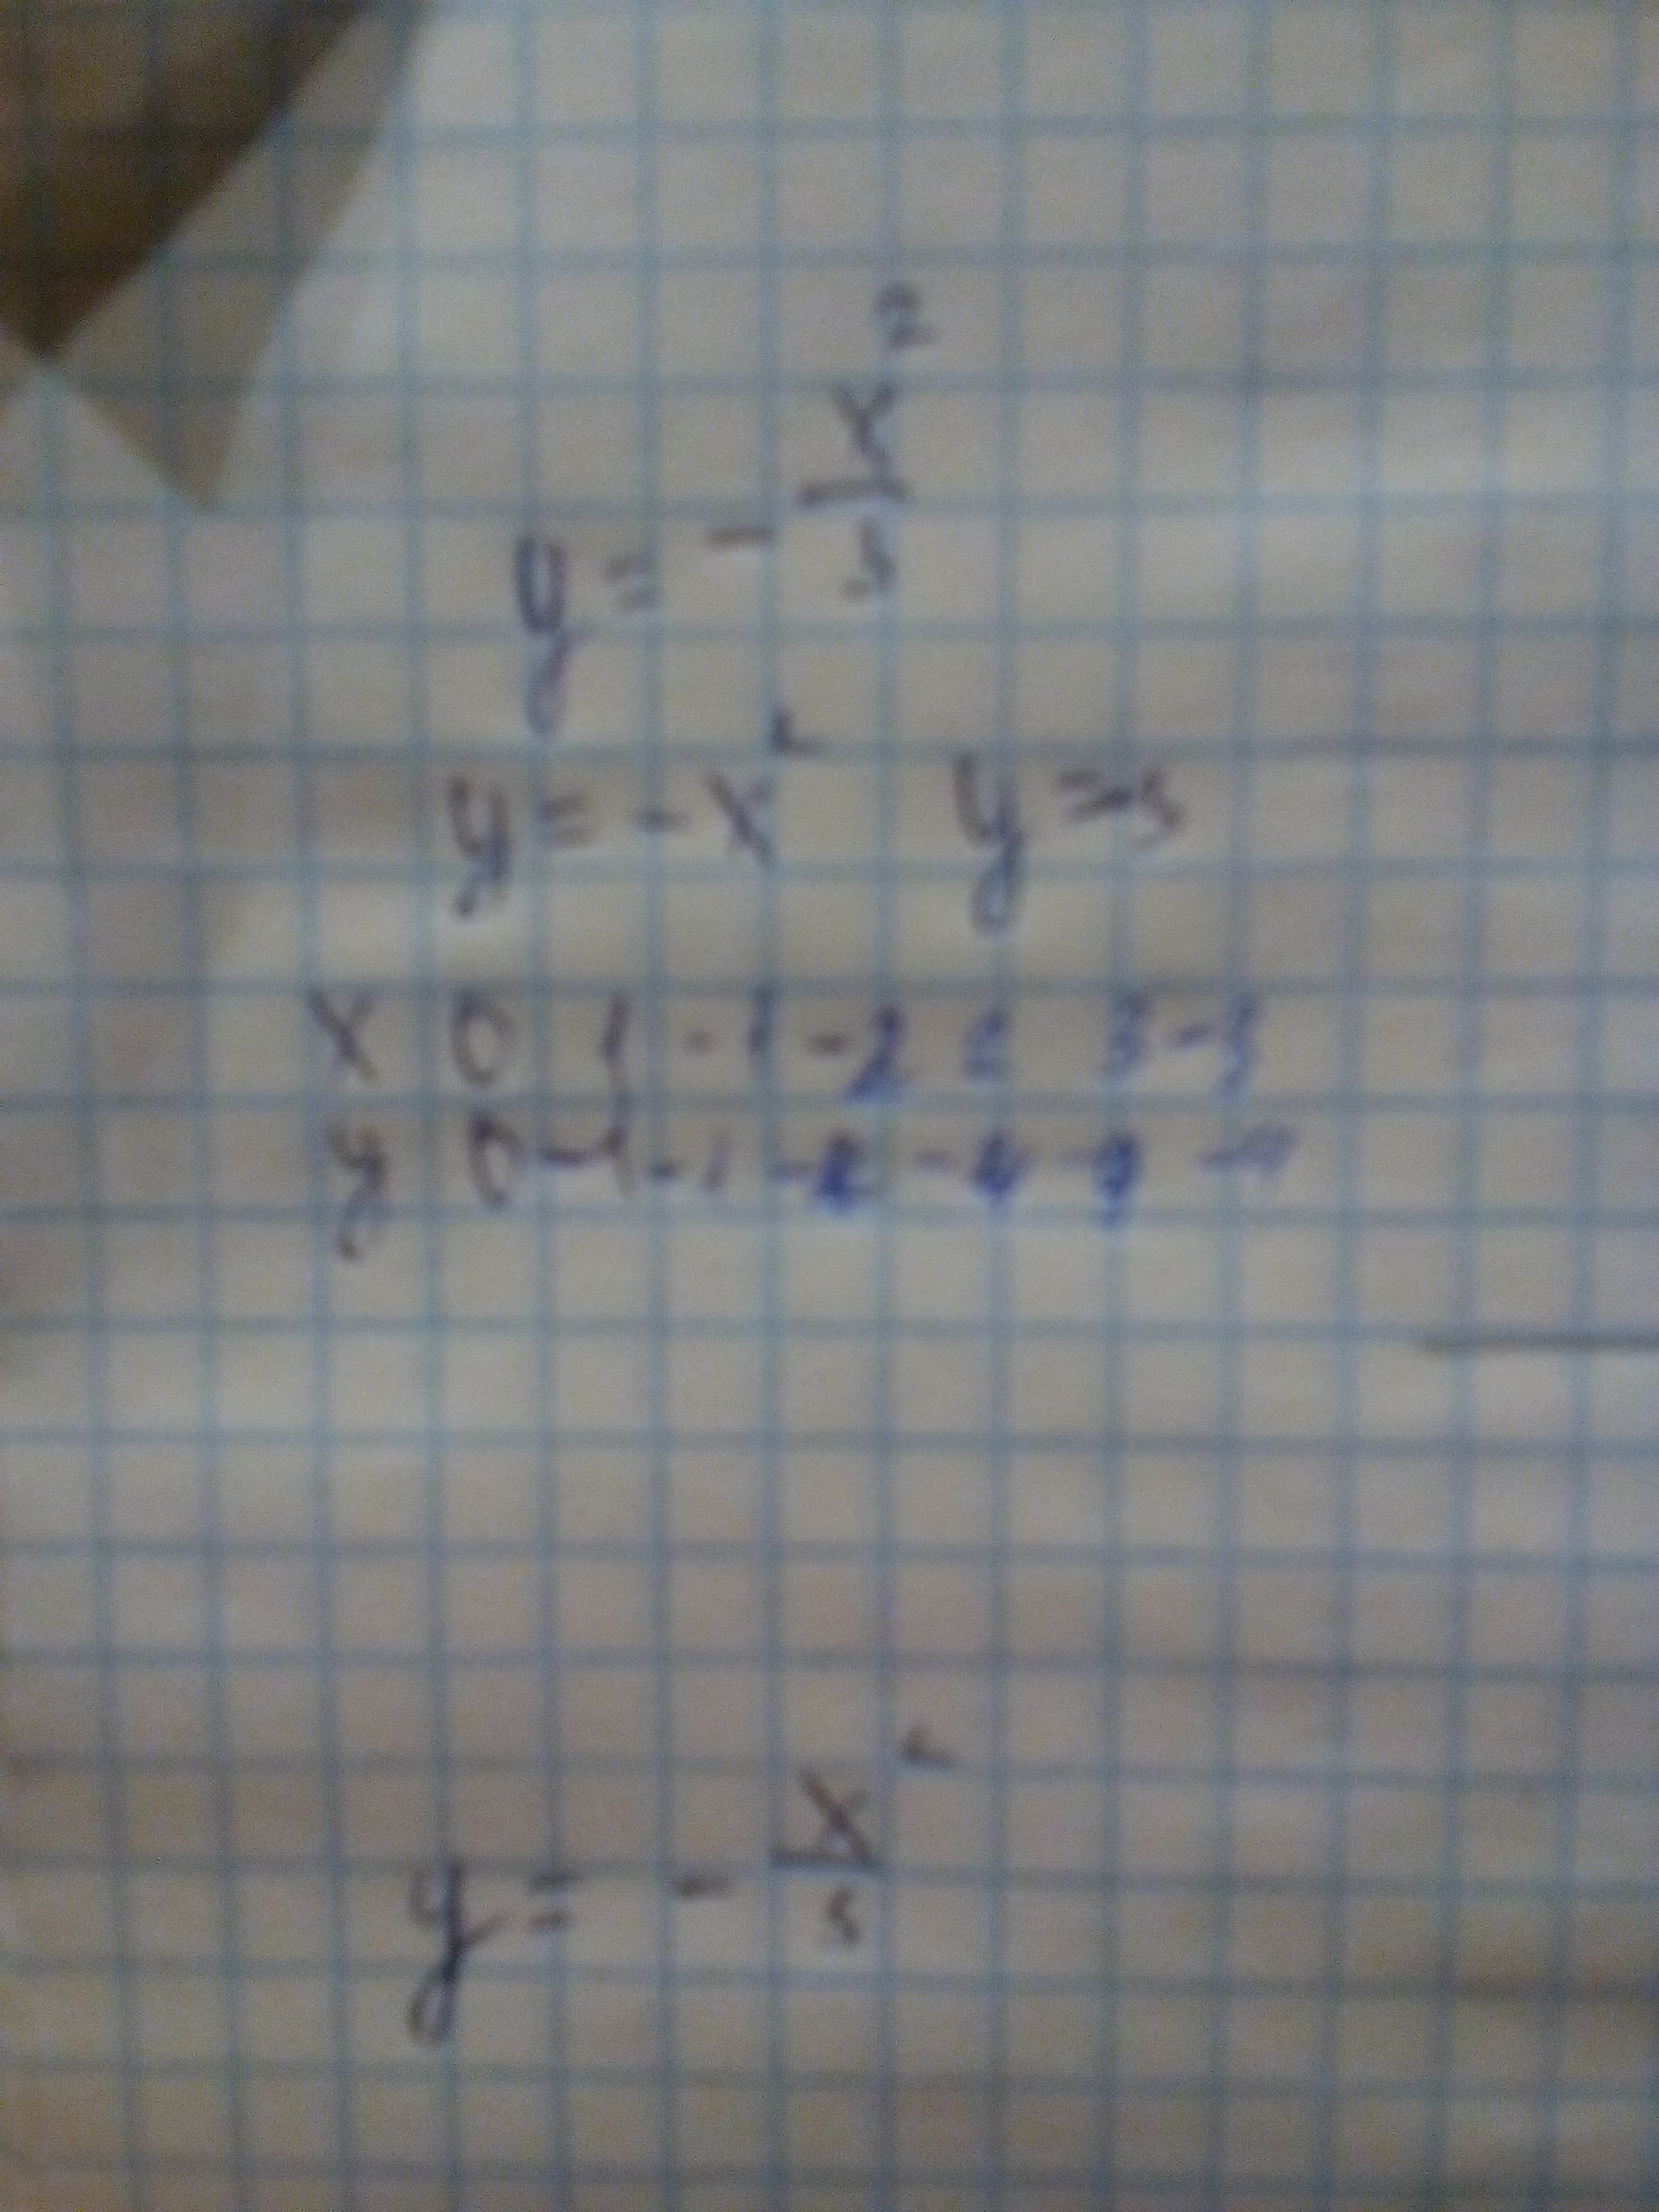 y = - x²/3
y = -x² y = 3
x 0 1 -1 -2 2 3 -3
y 0 -1 -1 -4 -9
y = - x²/3